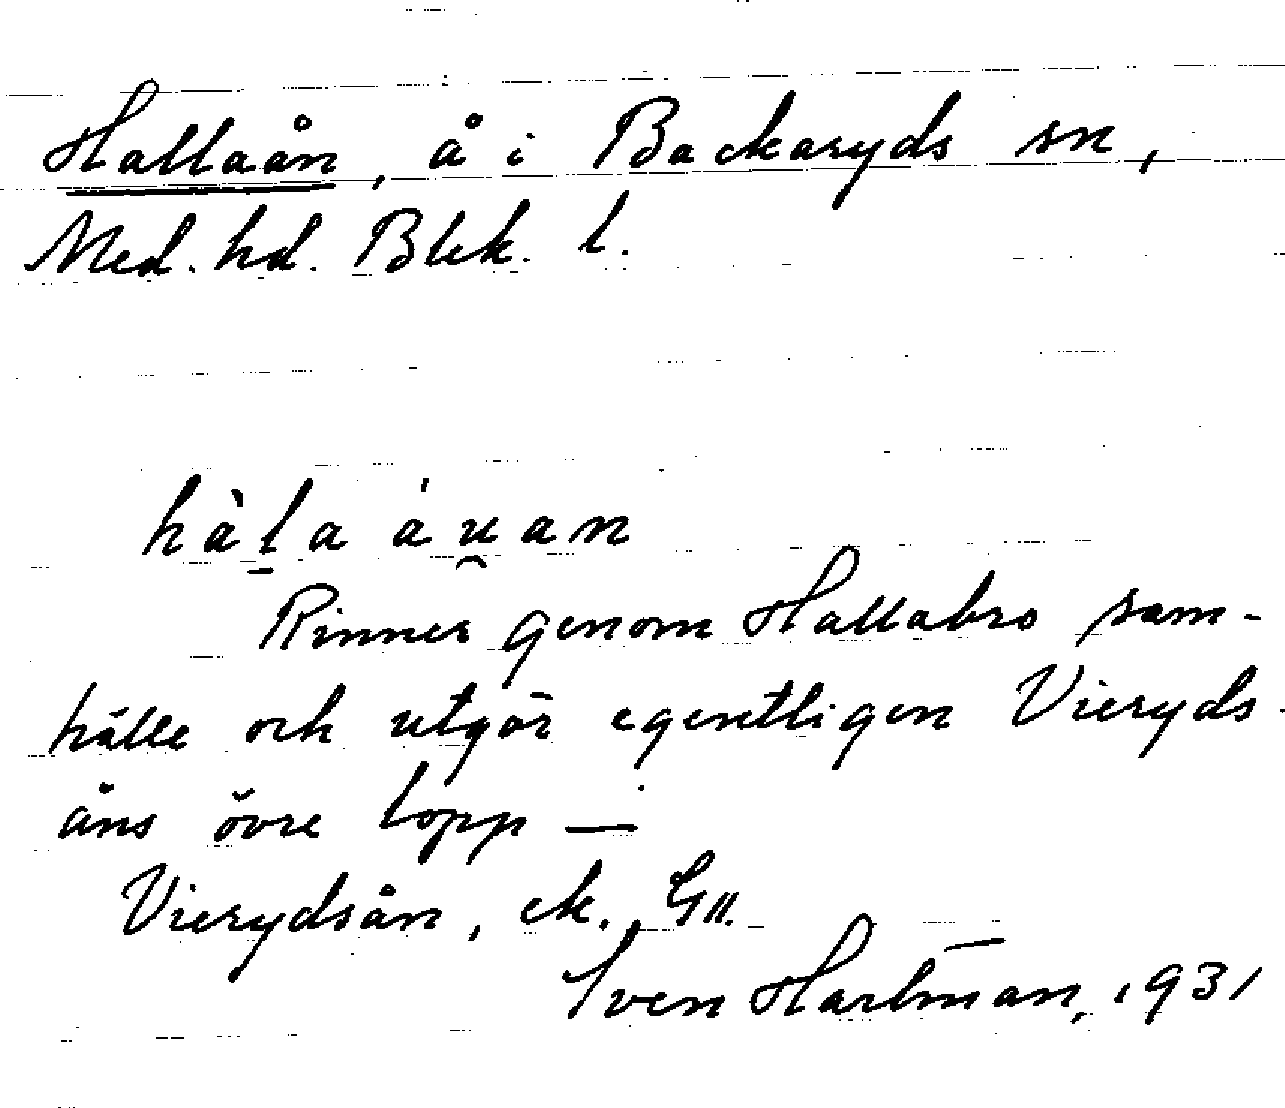 Hallaån, å i Backaryds sn,
Med. hd. Blek. l.
hàl̠a áu̯an
Rinner genom Hallabro sam-
hälle och utgör egentligen Vieryds-
åns övre lopp —
Vierydsån, ek.
Sven Hartman, 1931